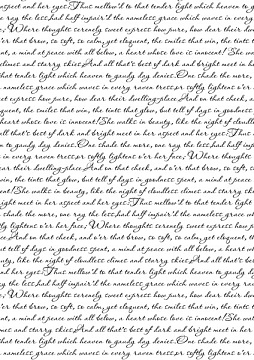 aspect and her eyes:Thus mellow'd to that tender light which heaven to ga
ray the less,had half impair'd the nameless grace which waves in every
e; Where thoughts serenely sweet express how pure, how dear their dwe
r that brow, so soft, so calm, yet eloquent, the smiles that win, the tints
nt, a mind at peace with all below, a heart whose love is innocent!She wal
limes and starry skies;And all that's best of dark and bright meet in her a
that tender light which heaven to gaudy day denies.One shade the more,
nameless grace which waves in every raven tress,or softly lightens o'er
et express how pure, how dear their dwelling-place.And on that cheek, a
quent, the smiles that win, the tints that glow, but tell of days in goodness
heart whose love is innocent!She walks in beauty, like the night of cloudle
all that's best of dark and bright meet in her aspect and her eyes:Thus
n to gaudy day denies.One shade the more, one ray the less,had half imp
y raven tress,or softly lightens o'er her face; Where thoughts
ear their dwelling-place.And on that cheek, and o'er that brow, so soft, s
win, the tints that glow, but tell of days in goodness spent, a mind at peace
nt!She walks in beauty, like the night of cloudless climes and starry skies
ight meet in her aspect and her eyes:Thus mellow'd to that tender light
shade the more, one ray the less,had half impair'd the nameless grace w
tly lightens o'er her face; Where thoughts serenely sweet express how p
ce.And on that cheek, and o'er that brow, so soft, so calm, yet eloquent, t
ut tell of days in goodness spent, a mind at peace with all below, a heart
uty, like the night of cloudless climes and starry skies;And all that's best
and her eyes:Thus mellow'd to that tender light which heaven to gaudy d
e less,had half impair'd the nameless grace which waves in every raven t
Where thoughts serenely sweet express how pure, how dear their dwelling
o'er that brow, so soft, so calm, yet eloquent, the smiles that win, the tints
nt, a mind at peace with all below, a heart whose love is innocent!She wal
mes and starry skies;And all that's best of dark and bright meet in her
that tender light which heaven to gaudy day denies.One shade the more,
ameless grace which waves in every raven tress,or softly lightens o'er her